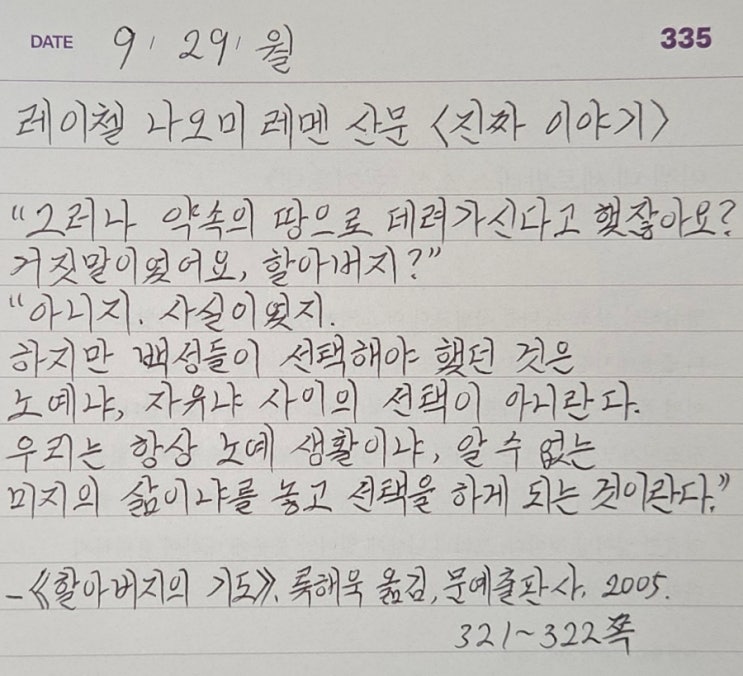 DATE 9 / 29 / 월 335
레이첼 나오미 레멘 산문 〈진짜 이야기〉
“그러나 약속의 땅으로 데려가신다고 했잖아요?
거짓말이었어요, 할아버지?”
“아니지. 사실이었지.
하지만 백성들이 선택해야 했던 것은
노예냐, 자유냐 사이의 선택이 아니란다.
우리는 항상 노예 생활이냐, 알 수 없는
미지의 삶이냐를 놓고 선택을 하게 되는 것이란다.”
-《할아버지의 기도》. 류해욱 옮김, 문예출판사. 2005.
321~322쪽